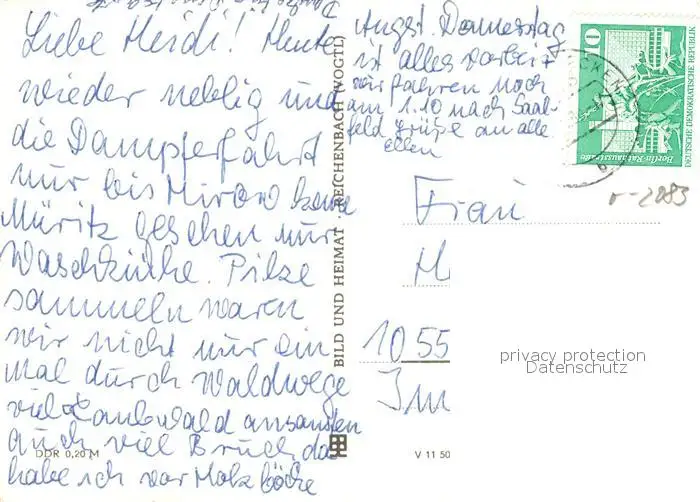 Liebe Heidi! Heute
wieder neblig und
die Dampferfahrt
nur bis Mirow keine
Müritz gesehen nur
Waschküche. Pilze
sammeln waren
wir nicht nur ein
Mal durch Waldwege
viel Laubwald ansonsten
auch viel Bruch da
habe ich vor Holzböcke
Angst. Donnerstag
ist alles vorbei
wir fahren noch
am 1.10 nach Saal-
feld Grüße an alle
Ellen
BILD UND HEIMAT REICHENBACH (VOGTL)
10
Berlin-Rathausstraße
DEUTSCHE DEMOKRATISCHE REPUBLIK
r-2083
Frau
H
1055
privacy protection
Datenschutz
DDR 0,20 M
V 11 50